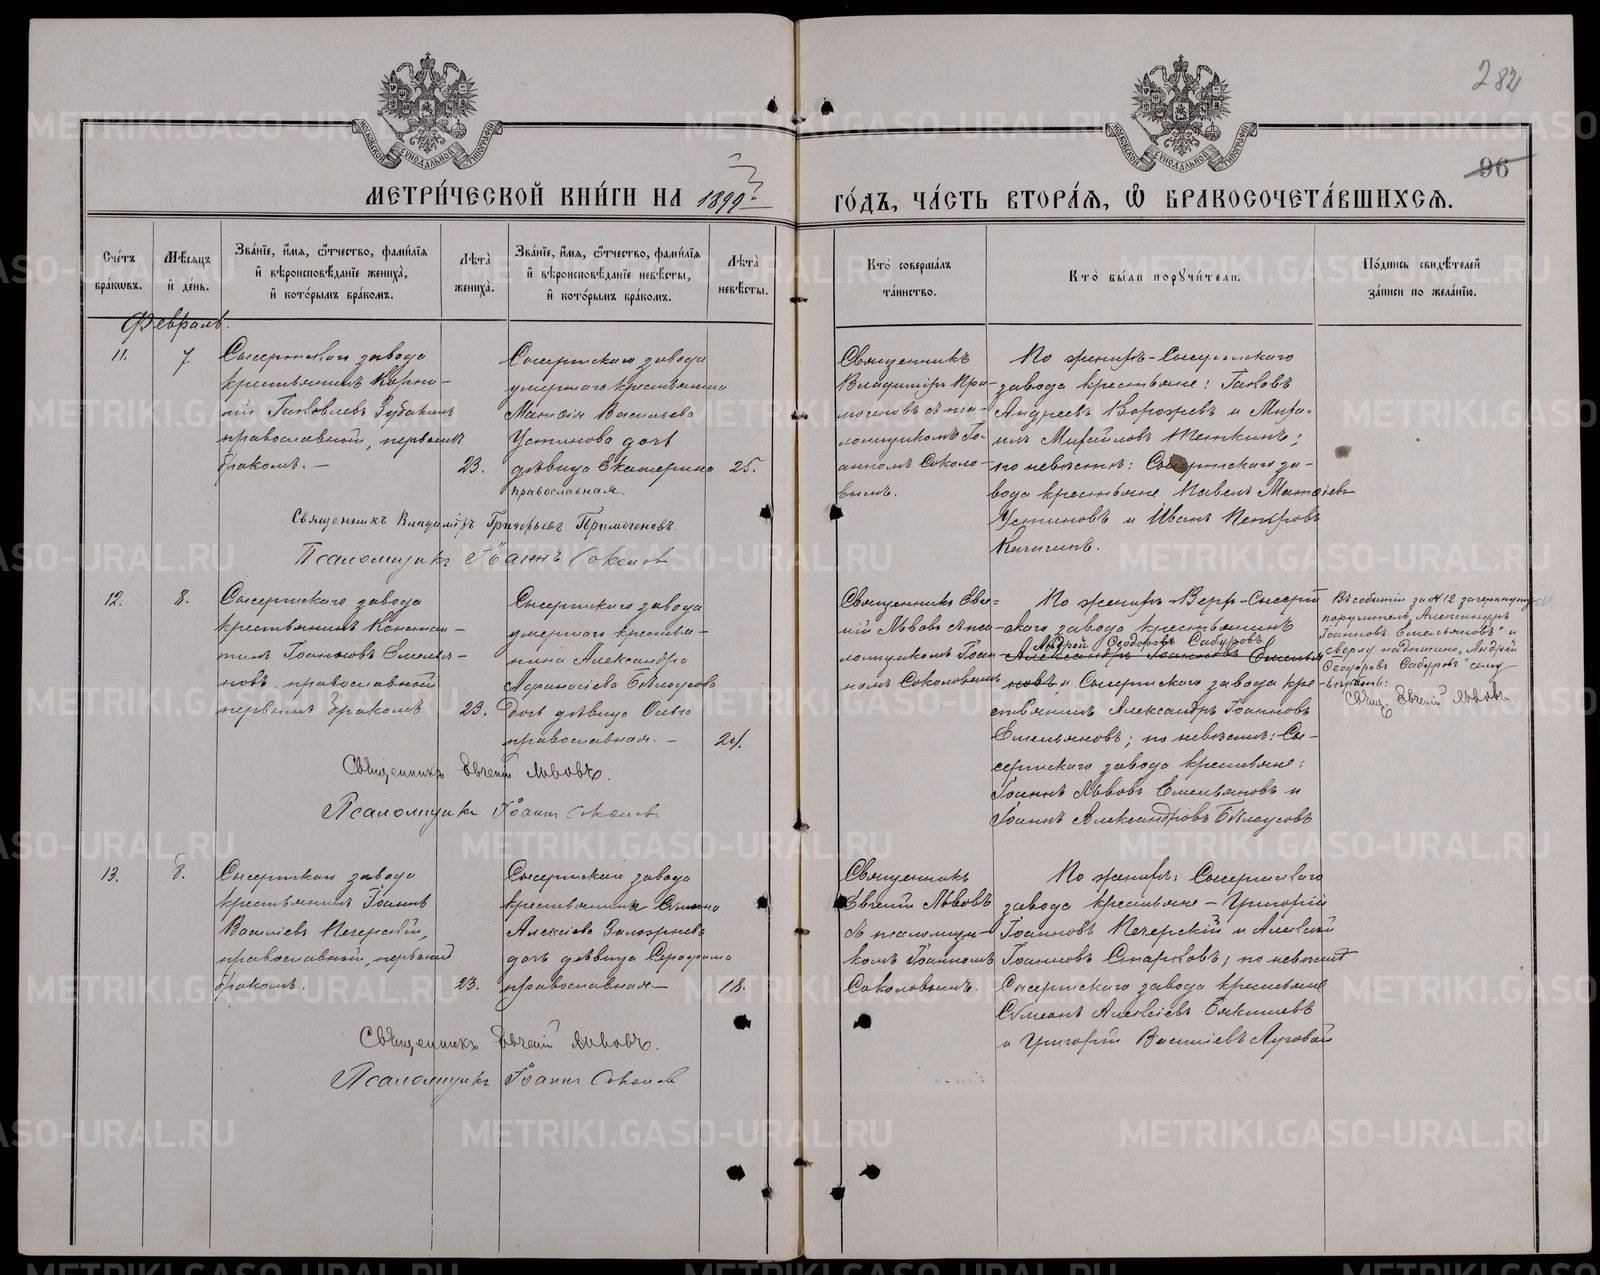 282
96
МОСКОВСКОЙ СѴНОДАЛЬНОЙ ТИПОГРАФІИ
МОСКОВСКОЙ СѴНОДАЛЬНОЙ ТИПОГРАФІИ
МЕТРИ́ЧЕСКОЙ КНИ́ГИ НА 1899
ГО́ДЪ, ЧА́СТЬ ВТОРА́Я, Ѽ БРАКОСОЧЕТА́ВШИХСЯ.
Сче́тъ бра́кѡвъ.
Мѣ́сяцъ и҆ де́нь.
Зва́нїе, и҆́мя, ѻ҆́тчество, фами́лїя и҆ вѣроисповѣ́данїе жениха̀, и҆ кото́рымъ бра́комъ.
Лѣта̀ жениха̀.
Зва́нїе, и҆́мя, ѻ҆́тчество, фами́лїя и҆ вѣроисповѣ́данїе невѣ́сты, и҆ кото́рымъ бра́комъ.
Лѣта̀ невѣ́сты.
Кто̀ соверша́лъ та́инство.
Кто̀ бы́ли порꙋчи́тели.
По́дпись свидѣ́телей за́писи по жела́нїю.
Февраль.
11.
7
Сысертскаго завода
крестьянинъ Корни-
лій Іаковлевъ Зубакинъ
православный, первымъ
бракомъ. —
23.
Сысертскаго завода
умершаго крестьянина
Матѳія Васильева
Устинова дочь
дѣвица Екатерина
православная.
25.
Священникъ
Владиміръ При-
могеновъ съ пса-
ломщикомъ Іо-
анномъ Соколо-
вымъ.
По женихѣ - Сысертскаго
завода крестьяне: Іаковъ
Андреевъ и Миха-
илъ Михайловъ
по невѣстѣ: Сысертскаго за-
вода крестьяне Павелъ Матѳіевъ
Устиновъ и Иванъ Петровъ
Священникъ Владиміръ Григорьевъ Примогеновъ.
Псаломщикъ Іоаннъ Соколовъ
12.
8.
Сысертскаго завода
крестьянинъ Констан-
тинъ Іоанновъ Емелья-
новъ православный
первымъ бракомъ
23.
Сысертскаго завода
умершаго крестья-
нина Александра
Аѳанасіева Бѣлоусова
дочь дѣвица Ольга
православная. —
21.
Священникъ Евге-
ній Львовъ съ пса-
ломщикомъ Іоан-
номъ Соколовымъ
По женихѣ - Верх-Сысерт-
скаго завода крестьянинъ
Андрей Ѳеодоровъ Сабуровъ
Александръ Іоанновъ Емелья-
новъ и Сысертскаго завода кре-
стьянинъ Александръ Іоанновъ
Емельяновъ; по невѣстѣ: Сы-
сертскаго завода крестьяне:
Іоаннъ Львовъ Емельяновъ и
Іоаннъ Александровъ Бѣлоусовъ
Въ событіи за № 12 зачеркнуту
поручитель „Александръ
Іоанновъ Емельяновъ" и
сверху надписано „Андрей
Ѳеодоровъ Сабуровъ" сему
вѣрить:
Свящ. Евгеній Львовъ.
Священникъ Евгеній Львовъ.
Псаломщикъ Іоаннъ Соколовъ
13.
8.
Сысертскаго завода
крестьянинъ Іоаннъ
Василіевъ Печерскій,
православный, первымъ
бракомъ.
23.
Сысертскаго завода
крестьянина Симеона
Алексіева
дочь дѣвица Серафима
православная —
18.
Священникъ
Евгеній Львовъ
съ псаломщи-
комъ Іоанномъ
Соколовымъ.
По женихѣ: Сысертскаго
завода крестьяне - Григорій
Іоанновъ Печерскій и Алексій
Іоанновъ Старковъ; по невѣстѣ
Сысертскаго завода крестьяне
Симеонъ Алексіевъ
и Григорій Василіевъ Луговой
Священникъ Евгеній Львовъ.
Псаломщикъ Іоаннъ Соколовъ
METRIKI.GASO-URAL.RU